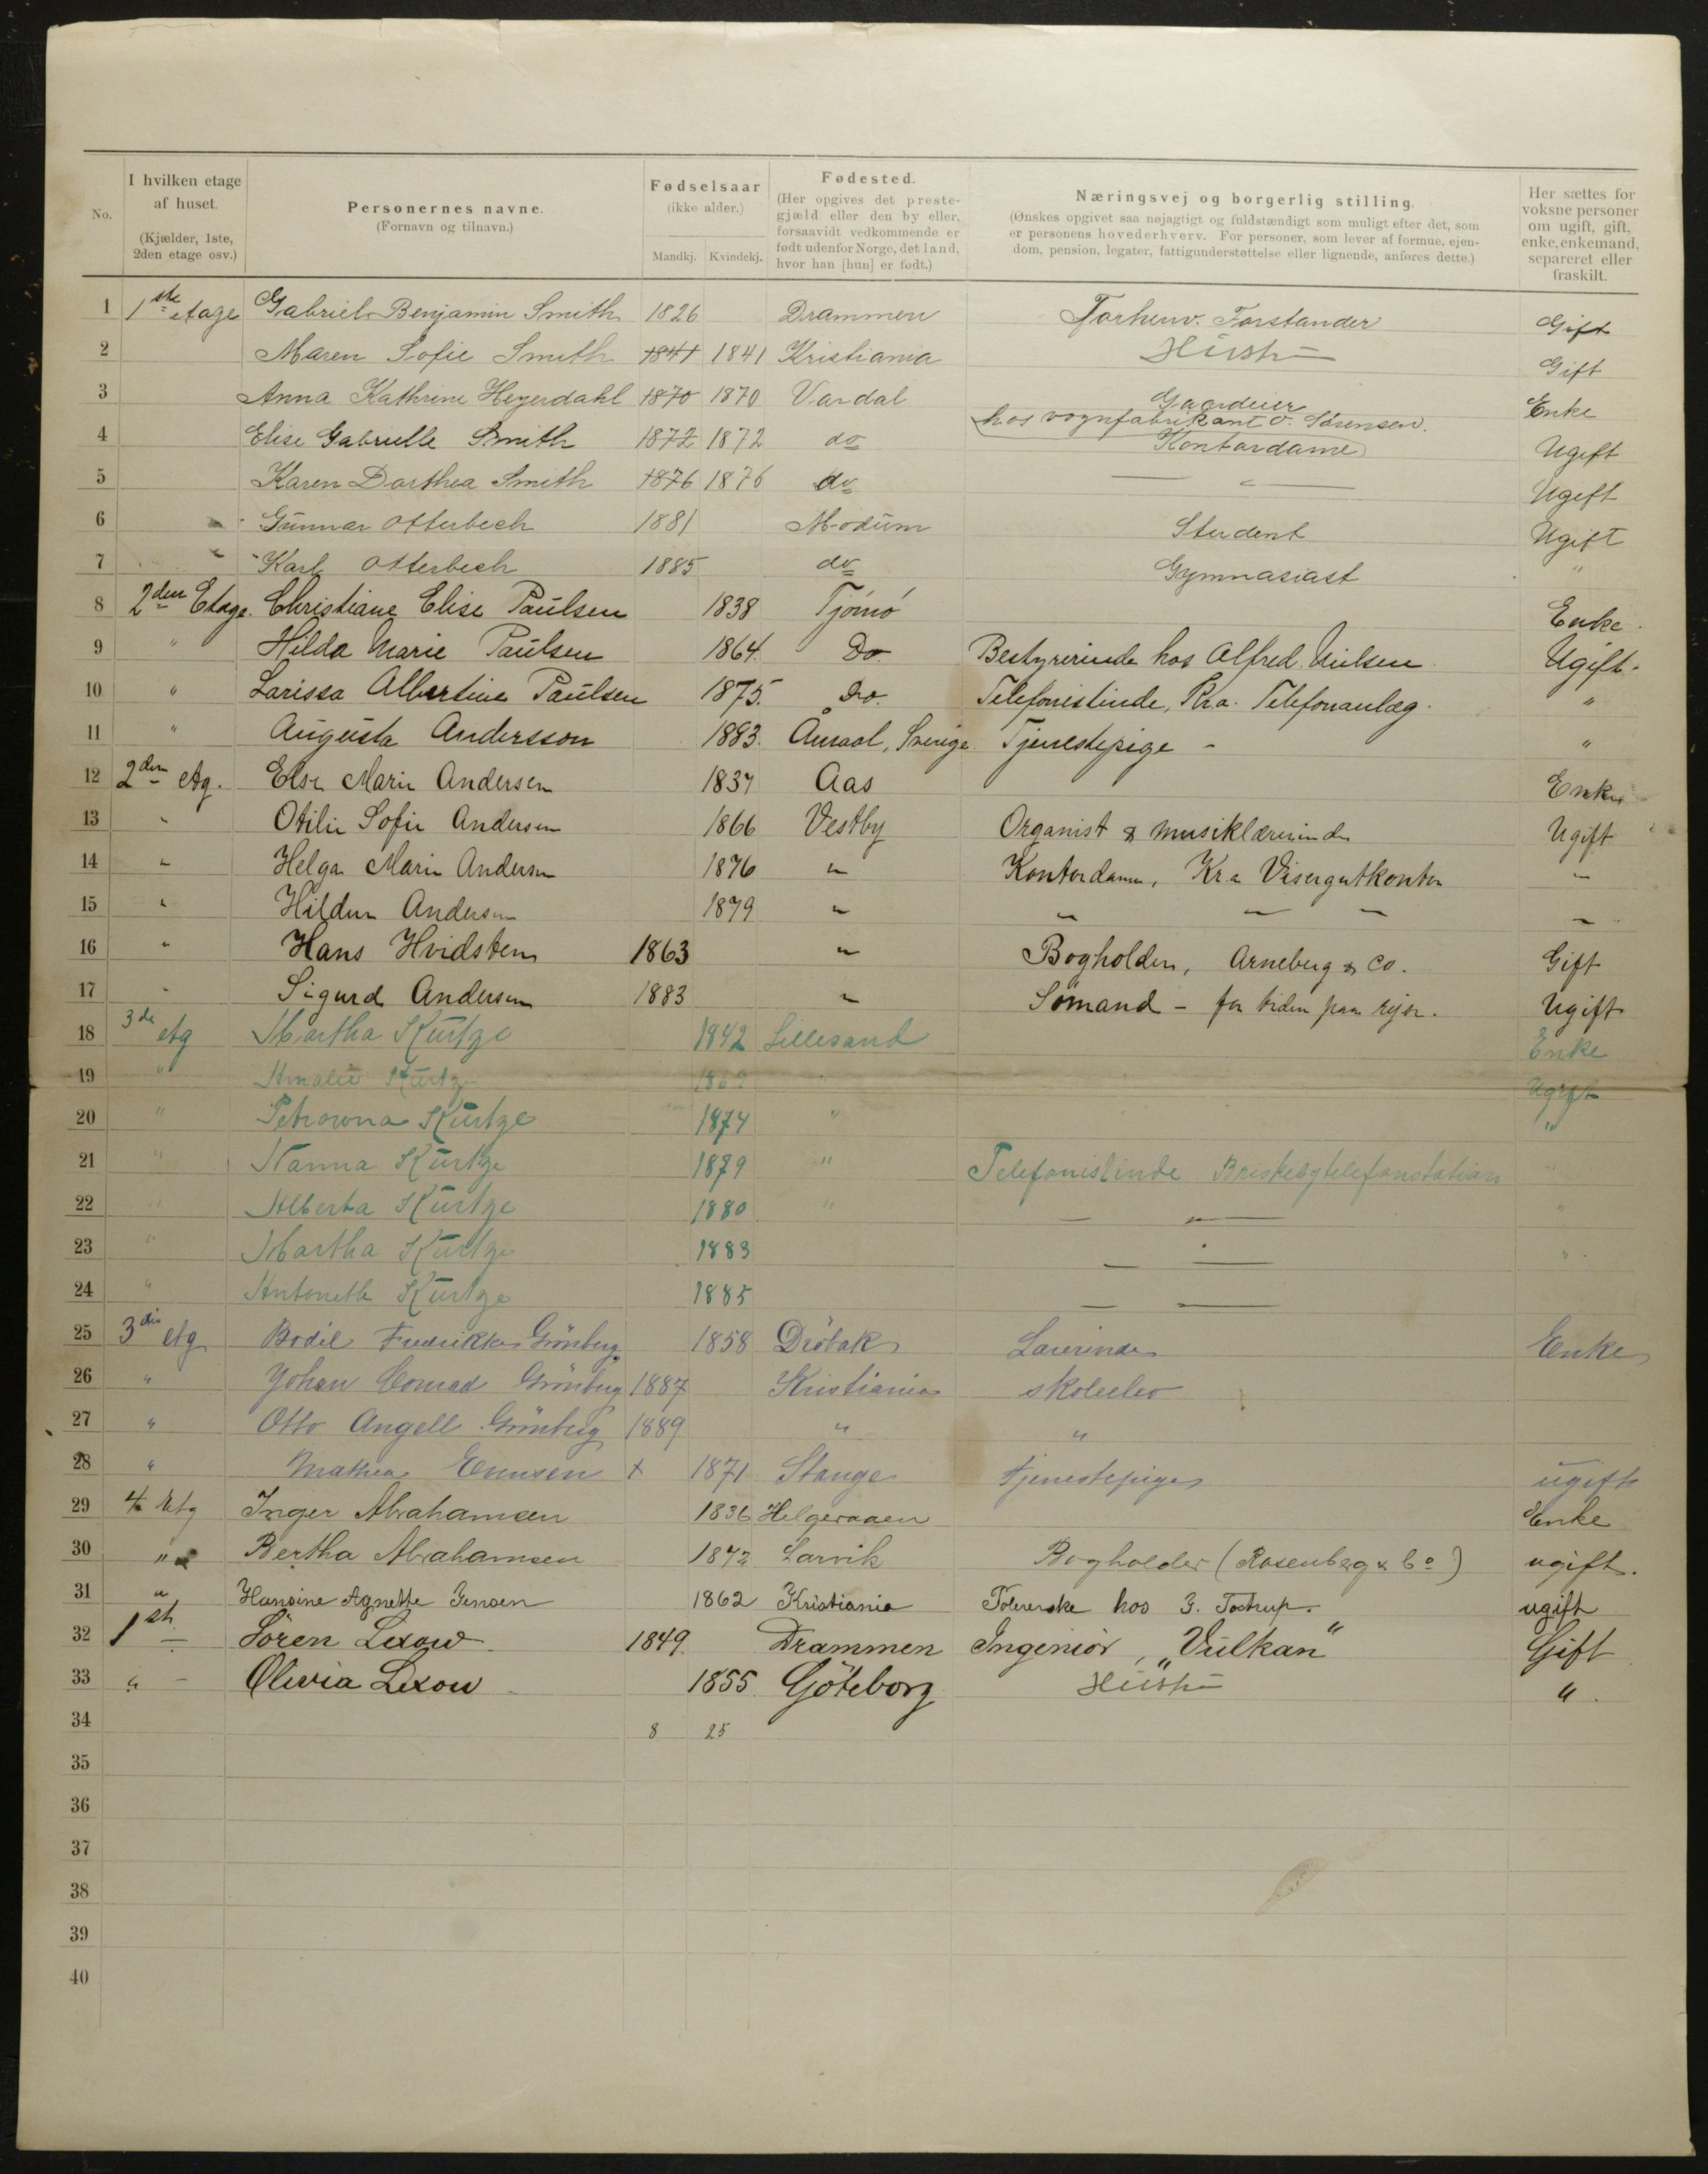 No.
I hvilken etage af huset.
(Kjælder, 1ste, 2den etage osv.)
Personernes navne.
(Fornavn og tilnavn.)
Fødselsaar
(ikke alder.)
Mandkj. Kvindekj.
Fødested.
(Her opgives det preste-
gjæld eller den by eller,
forsaavidt vedkommende er
født udenfor Norge, det land,
hvor han [hun] er født.)
Næringsvej og borgerlig stilling.
(Ønskes opgivet saa nøjagtigt og fuldstændigt som muligt efter det, som
er personens hovederhverv. For personer, som lever af formue, ejen-
dom, pension, legater, fattigunderstøttelse eller lignende, anføres dette.)
Her sættes for
voksne personer
om ugift, gift,
enke, enkemand,
separeret eller
fraskilt.
1 1ste etage Gabriel Benjamin Smith 1826 Drammen Forhenv. Forstander Gift
2 Maren Sofie Smith 1841 1841 Kristiania Hustr Gift
3 Anna Kathrine Heyerdahl 1870 1870 Vardal Gaardeier Enke
4 Elise Gabrielle Smith 1872 1872 do hos vognfabrikant O. Sørensen. Kontordame Ugift
5 Karen Dorthea Smith 1876 1876 do — " — Ugift
6 Gunnar Otterbech 1881 Modum Student Ugift
7 Karl Otterbech 1885 do Gymnasiast "
8 2den Etage. Christiane Elise Paulsen 1838 Tjömö Enke.
9 " Hilda Marie Paulsen 1864. Do. Bestyrerinde hos Alfred Nielsen Ugift.
10 " Larissa Albertine Paulsen 1875. Do. Telefonistinde, Kra. Telefonanlæg. "
11 " Augusta Andersson 1883. Åmaal, Sverige. Tjenestepige - "
12 2den etg. Else Marie Andersen 1837 Aas Enke
13 " Otilie Sofie Andersen 1866 Vestby Organist & musiklærerinde Ugift
14 " Helga Marie Andersen 1876 " Kontordame, Kr.a Visergutkontor "
15 " Hildur Andersen 1879 " " — — "
16 " Hans Hvidsten 1863 " Bogholder, Arneberg & Co. Gift
17 " Sigurd Andersen 1883 " Sömand - for tiden paa rejse. Ugift
18 3de etg Martha Kurtze 1842 Lillesand Enke
19 " Amalie Kurtze 1869 " Ugift
20 " Petrowna Kurtze 1874 " "
21 " Nanna Kurtze 1879 " Telefonistinde Briskebytelefonstation "
22 " Alberta Kurtze 1880 " — " — "
23 " Martha Kurtze 1883 — " — "
24 " Antonette Kurtze 1885 — —
25 3die etg Bodil Fredrikke Grönberg 1858 Dröbak Lærerinde Enke
26 " Johan Conrad Grönberg 1887 Kristiania skoleelev
27 " Otto Angell Grönberg 1889 " "
28 " Mathea Evensen x 1871 Stange Tjenestepige ugift
29 4 Etg Inger Abrahamsen 1836 Helgeraaen Enke
30 " Bertha Abrahamsen 1872 Larvik Bogholder (Rosenberg & Co) ugift.
31 " Hansine Agnette Jensen 1862 Kristiania Polererske hos J. Tostrup. ugift
32 1st — Sören Lexow 1849. Drammen Ingeniör, „Vulkan" Gift
33 " — Olivia Lexow 1855 Göteborg Hustr ".
34 8 25
35
36
37
38
39
40